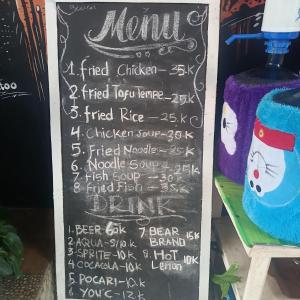 Menu
1. fried Chicken - 35K
2 fried Tofu Tempe - 25K
3. fried Rice - 25K
4 Chicken Soup - 30K
5. fried Noodle - 25K
6. Noodle Soup - 25K
7 Fish Soup - 30K
8 Fried Fish - 35K
DRINK
1. BEER 60K
2 AQUA - 5/10K
3. SPRITE - 10K
4 COCACOLA - 10K
5. POCARI - 12K
6 YOU'C - 12K
7. BEAR BRAND 15K
8. HOT Lemon 10K